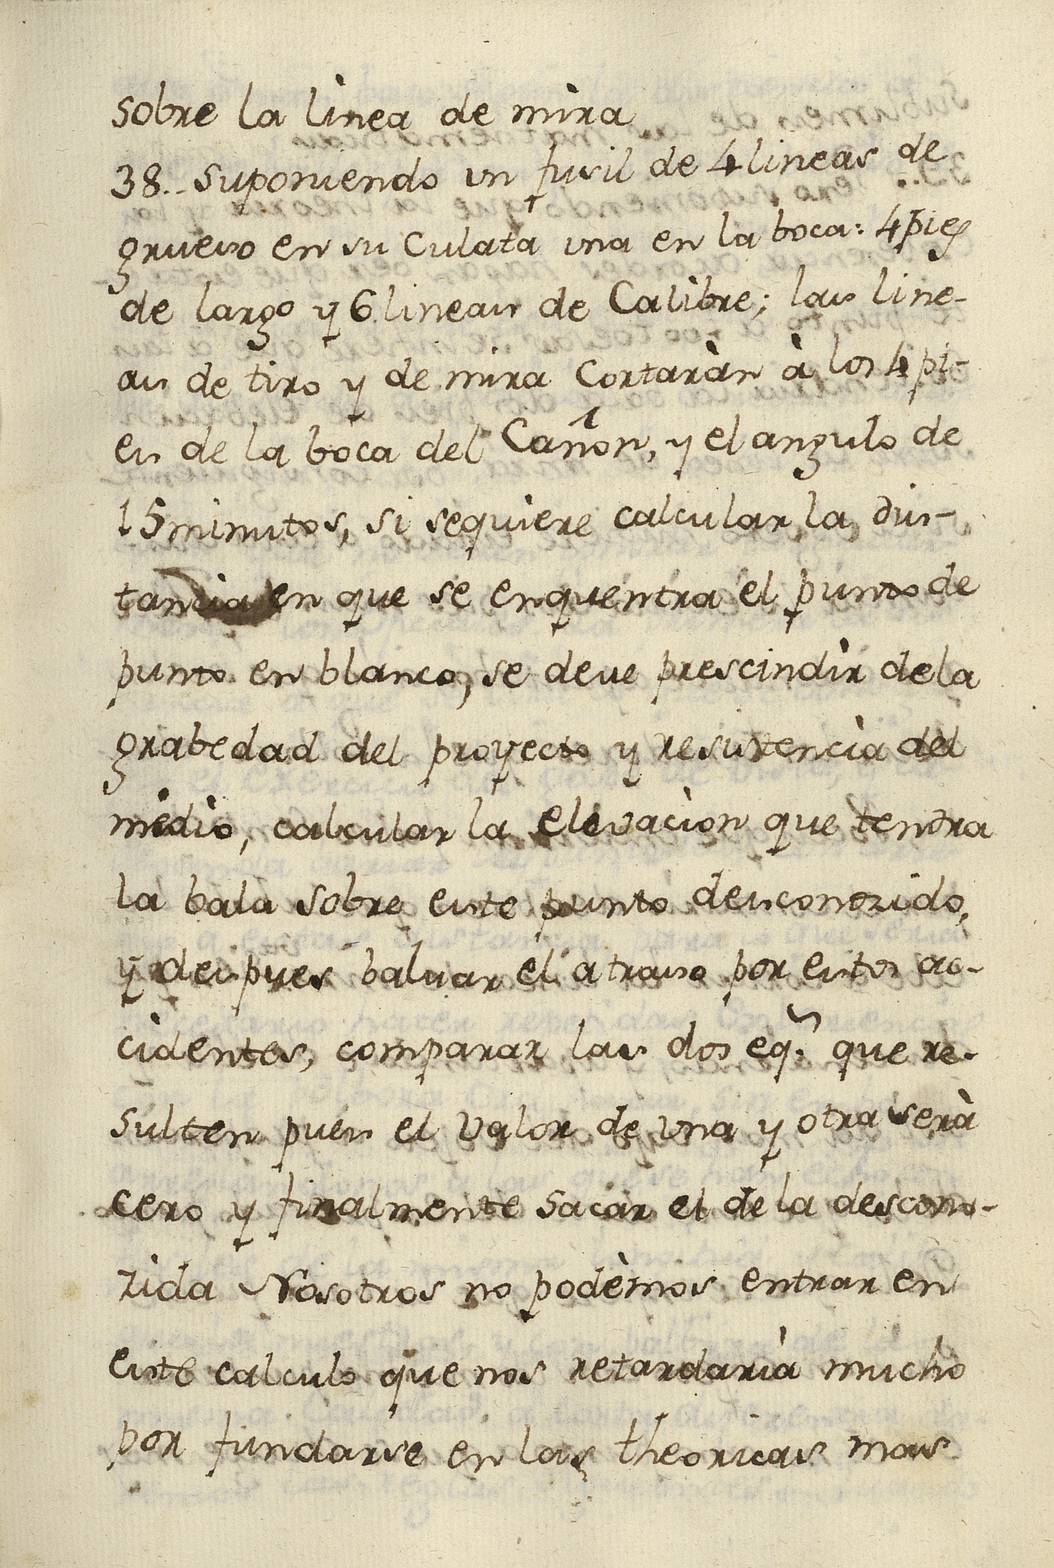 sobre la linea de mira
38.. suponiendo un fusil de 4 lineas de
grueso en su Culata una en la boca: 4 pies
de largo y 6 lineas de Calibre; las line-
as de tiro y de mira Cortaràn à los 4 pi-
es de la boca del Cañon, y el angulo de
15 minutos, si sequiere calcular la dis-
tancia en que se enquentra el punto de
punto en blanco, se deve prescindir dela
grabedad del proyecto y resistencia del
medio, calcular la elevacion que tendra
la bala sobre este punto desconozido,
y despues baluar el atraso por estos ac-
cidentes, comparar las dos eq.s que re-
sulten pues el valor de una y otra serà
cero y finalmente sacar el de la descono-
zida Nosotros no podemos entrar en
este calculo que nos retardaria mucho
por fundarse en las theoricas mas